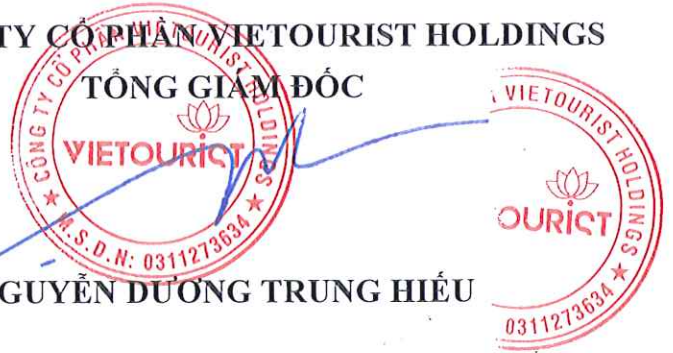 TY CỔ PHẦN VIETOURIST HOLDINGS
TỔNG GIÁM ĐỐC
CÔNG TY CỔ PHẦN VIETOURIST HOLDINGS
VIETOURIST
★ M.S.D.N: 0311273634 ★
VIETOURIST HOLDINGS ★
OURIST
0311273634
GUYỄN DƯƠNG TRUNG HIẾU